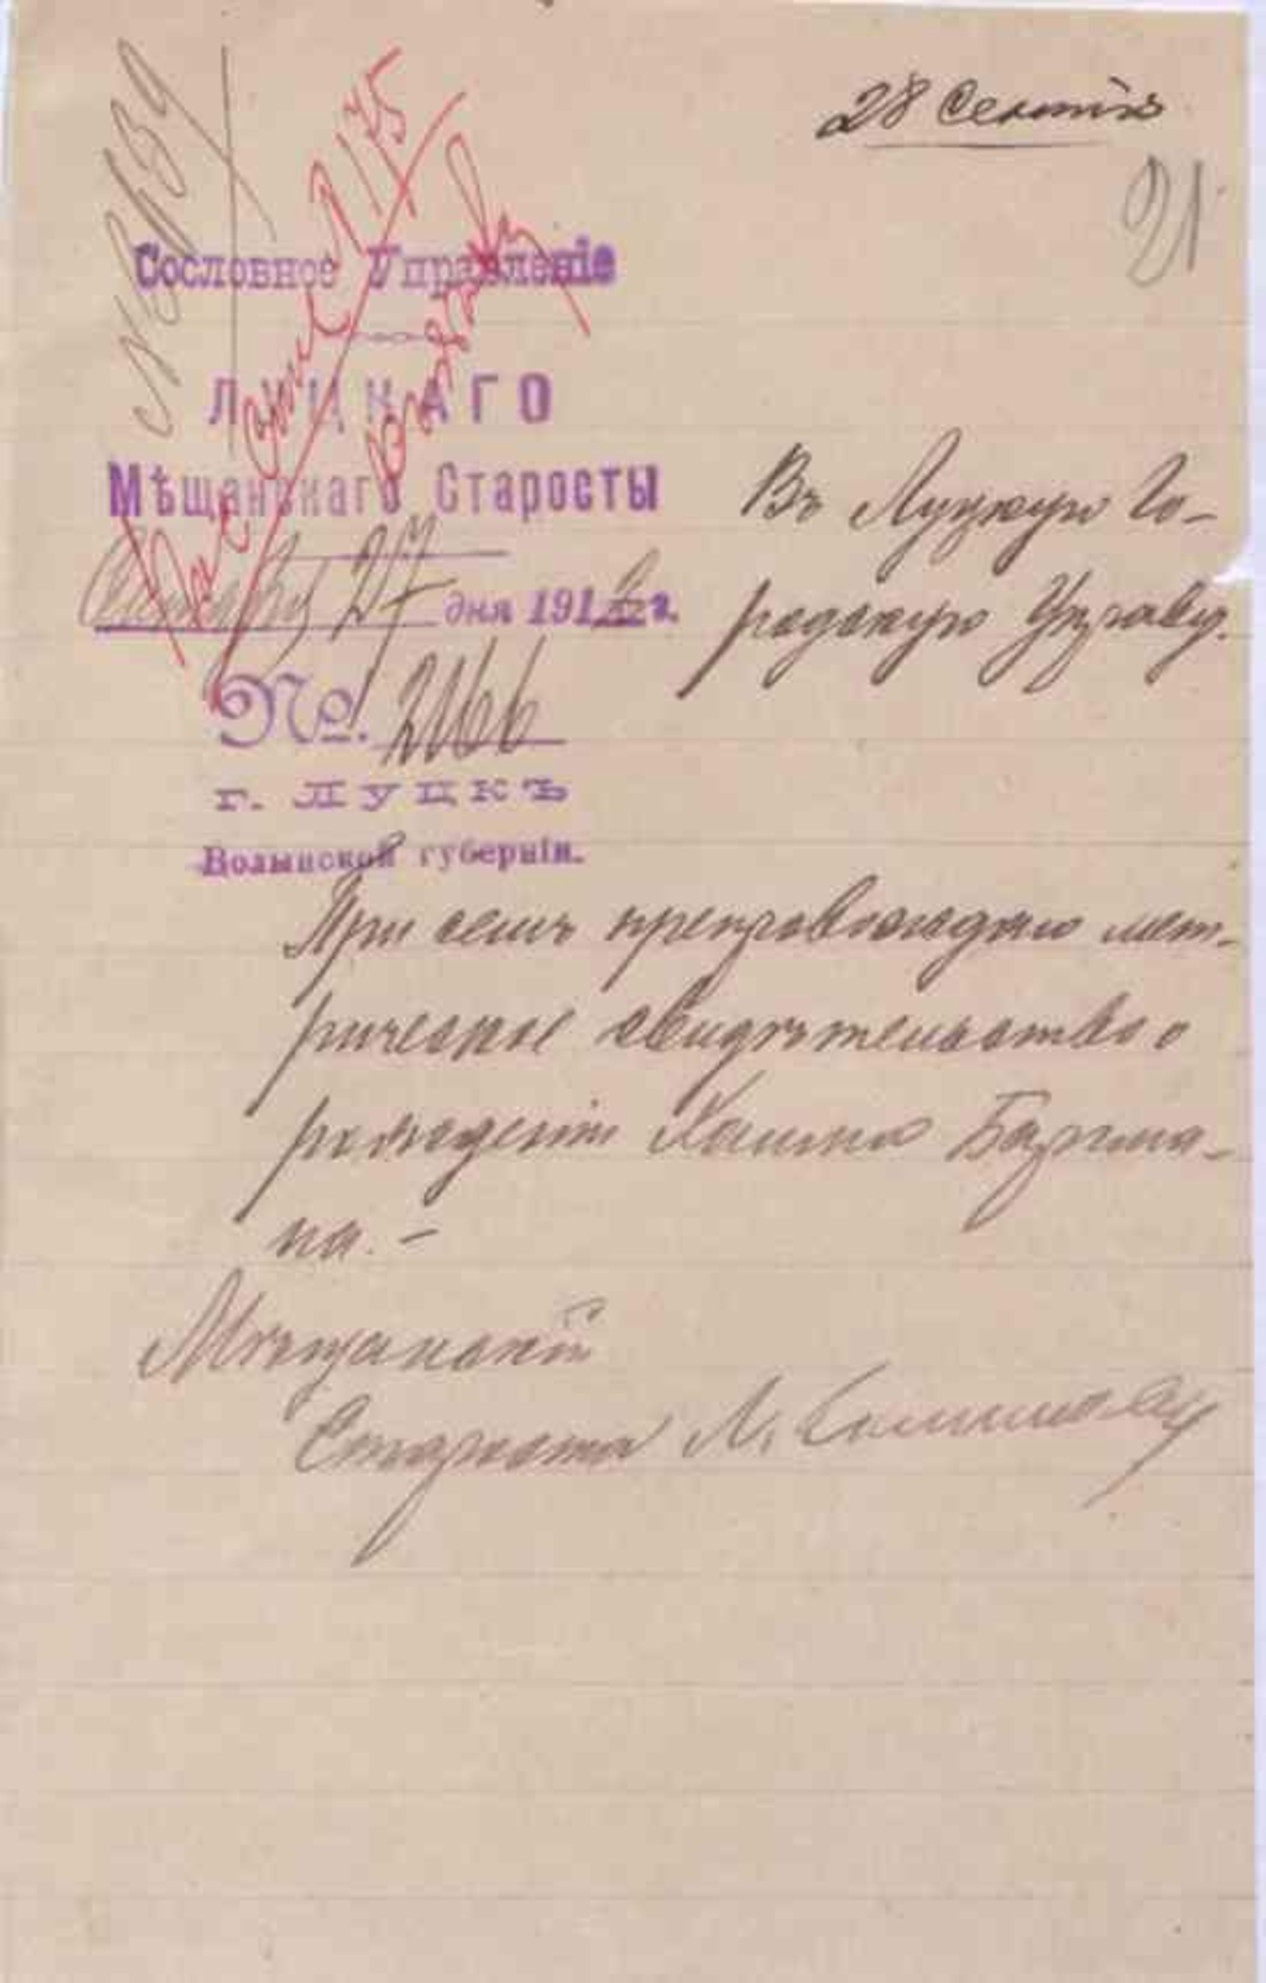 28 Сентяб
21
№ 8139
Сословное Управленіе
ЛУЦКАГО
Мѣщанскаго Старосты
Сентября 27 дня 1912 г.
№. 2166
г. ЛУЦКЪ
Волынской губерніи.
Въ Луцкую Го-
родскую Управу.
При семъ препровождаю мет-
рическое свидѣтельство о
рожденіи Хаима Бармана-
на. -
Мѣщанскій
Староста